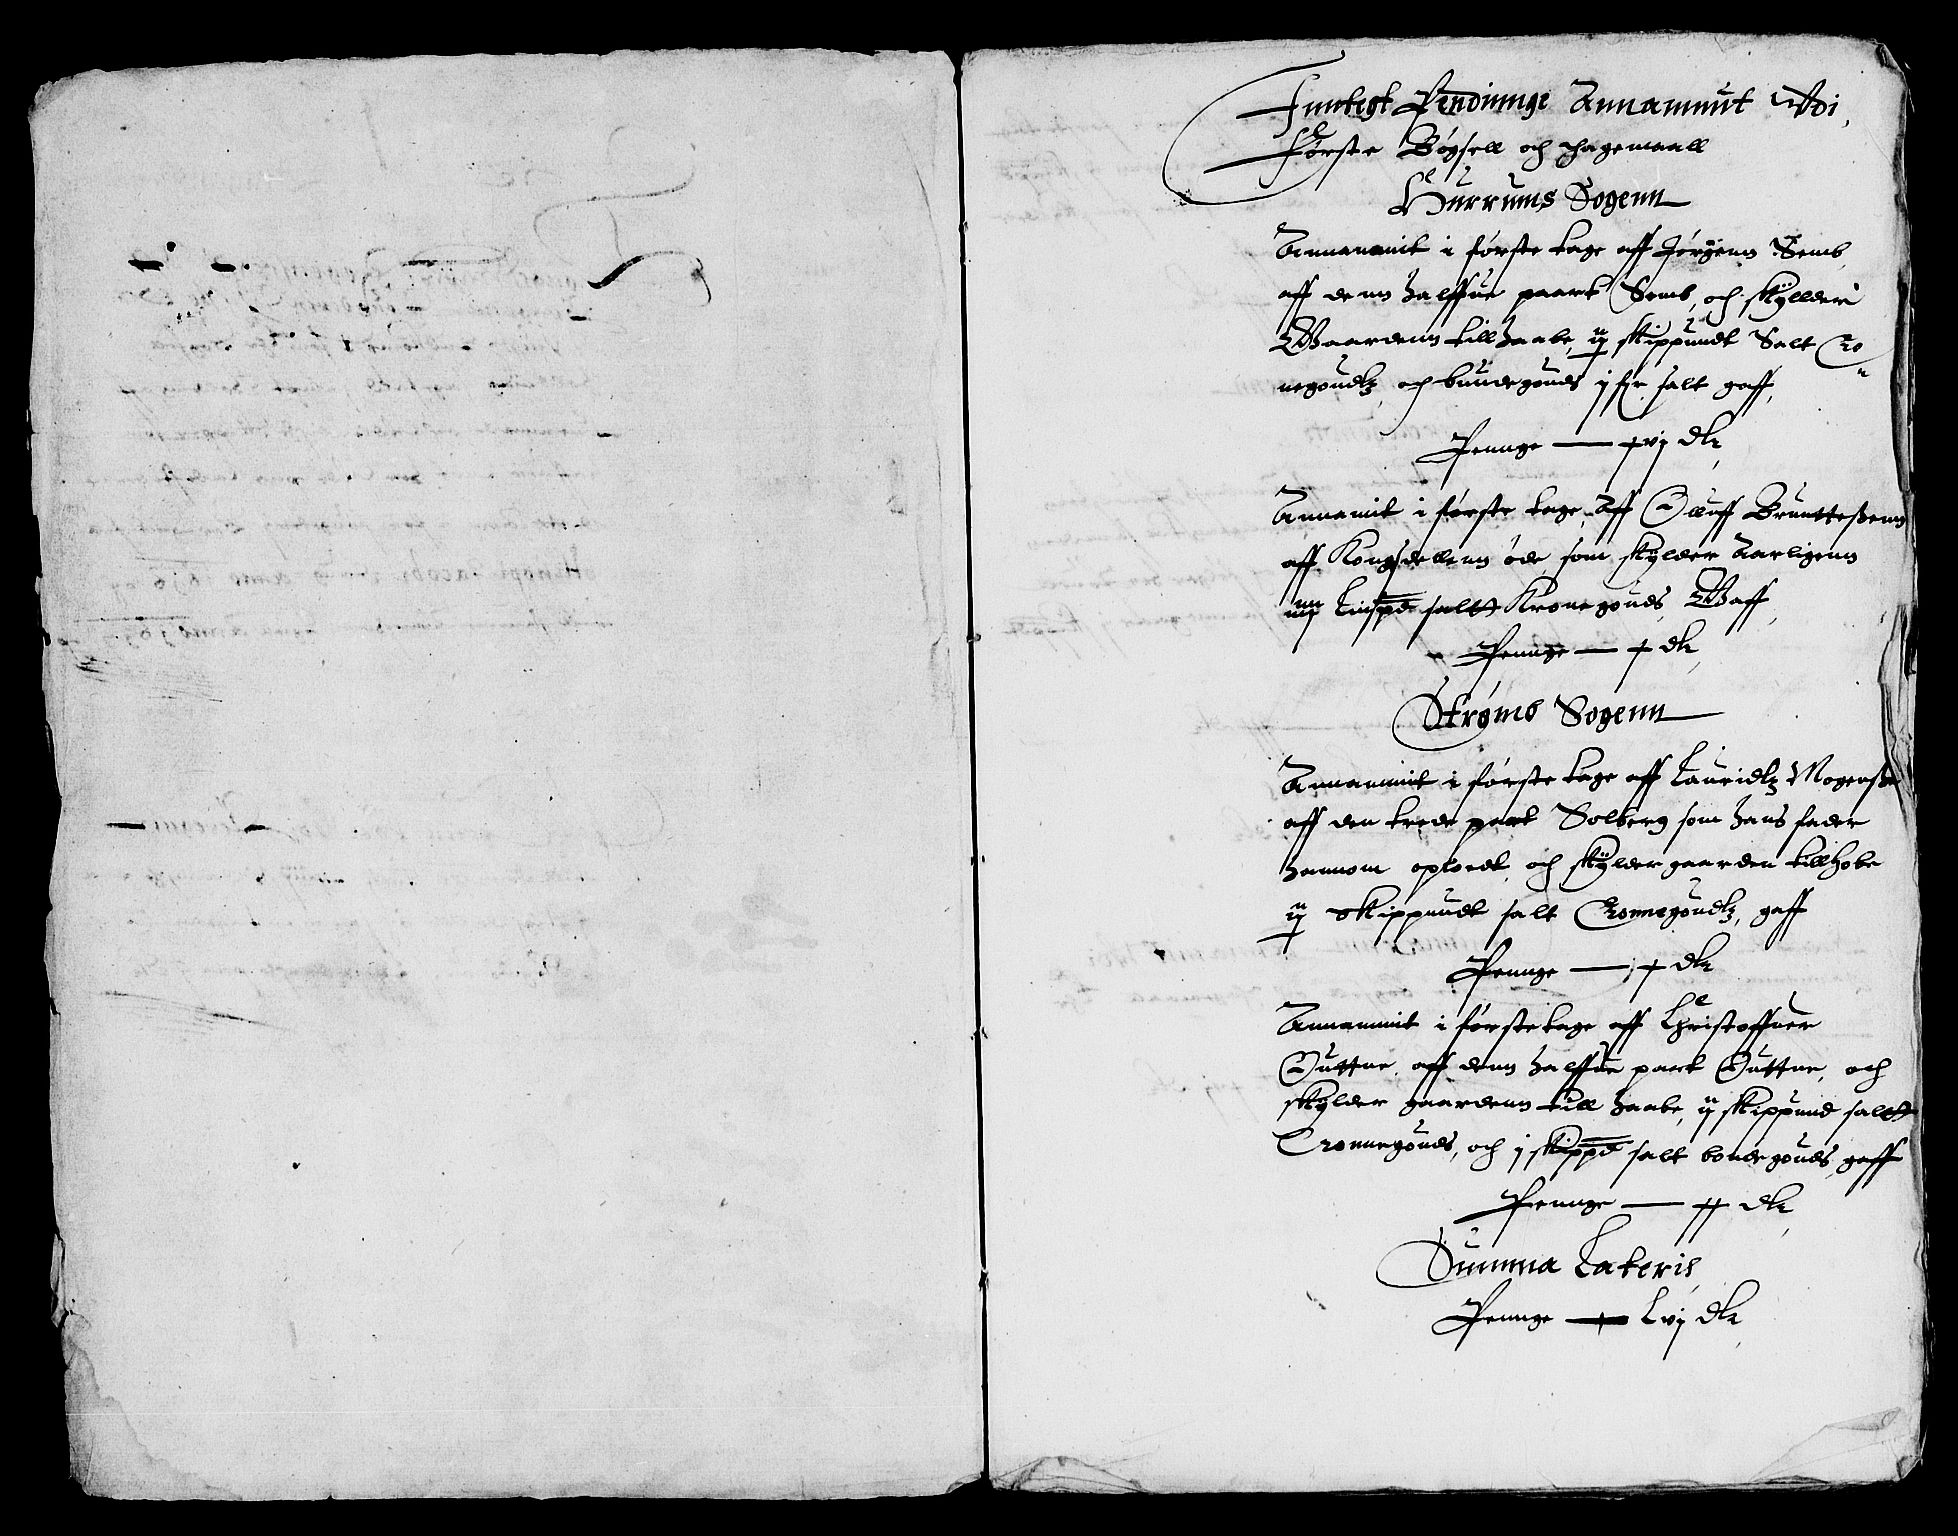 Inntegt Pendinnge Annammit Wdi
Første Bøgsell och hagemaall
Hurrums Sogenn
Annammit i første tage aff Jørgenn Semb,
aff denn halffue paart Semb, och skyllder
Gaardenn till haabe, ij skippundt Salt Cro
negoudtz, och bundegouds j sk salt gaff,
Pennge — xvj dlr
Annamit i første tage, Aff Oluff Brunttessenn
aff Kongsdellenn øde, som skylder Aarligenn
iiij Lispd saltt Kronegouds, Gaff,
Pennge — x dlr
Strømbs Sogenn
Annammit i første tage aff Lauridtz Mogenss
aff den trede part Solberg som hans fader
hannom oplodt, och skylder gaarden till hobe
ij skippundt salt Cronnegoudtz, gaff
Pennge — x dlr
Annammit i første tage aff Christoffuer
Guttne, aff denn halffue part Guttne, och
skylder gaardenn till haabe, ij skippund saltt
Cronnegouds, och j skippd salt bondegouds, gaff
Pennge — xx dlr
Summa Lateris,
Pennge — Lvj dlr